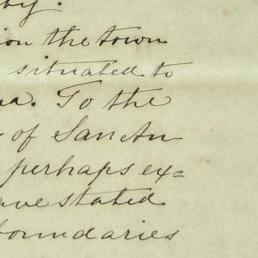 by.
ion the town
situated to
a. To the
of San An
perhaps ex=
ave stated
boundaries